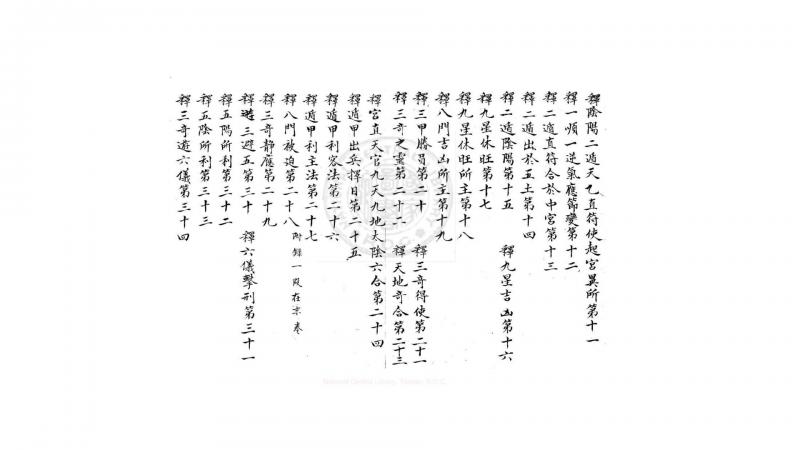 釋陰陽二遁天乙直符使起宮異所第十一
釋一順一逆氣應節變第十二
釋二遁直符合於中宮第十三
釋二遁出於五土第十四
釋二遁陰陽第十五　釋九星吉凶第十六
釋九星休旺第十七
釋九星休旺所主第十八
釋八門吉凶所主第十九
釋三甲勝昌第二十　釋三奇得使第二十一
釋三奇之靈第二十二　釋天地奇合第二十三
釋宮直天官九天九地太陰六合第二十四
釋遁甲出兵擇日第二十五
釋遁甲利客法第二十六
釋遁甲利主法第二十七
釋八門被迫第二十八 附錄一段在末卷
釋三奇靜應第二十九
釋遊三避五第三十　釋六儀擊刑第三十一
釋五陽所利第三十二
釋五陰所利第三十三
釋三奇遊六儀第三十四
National Central Library, Taiwan, R.O.C.